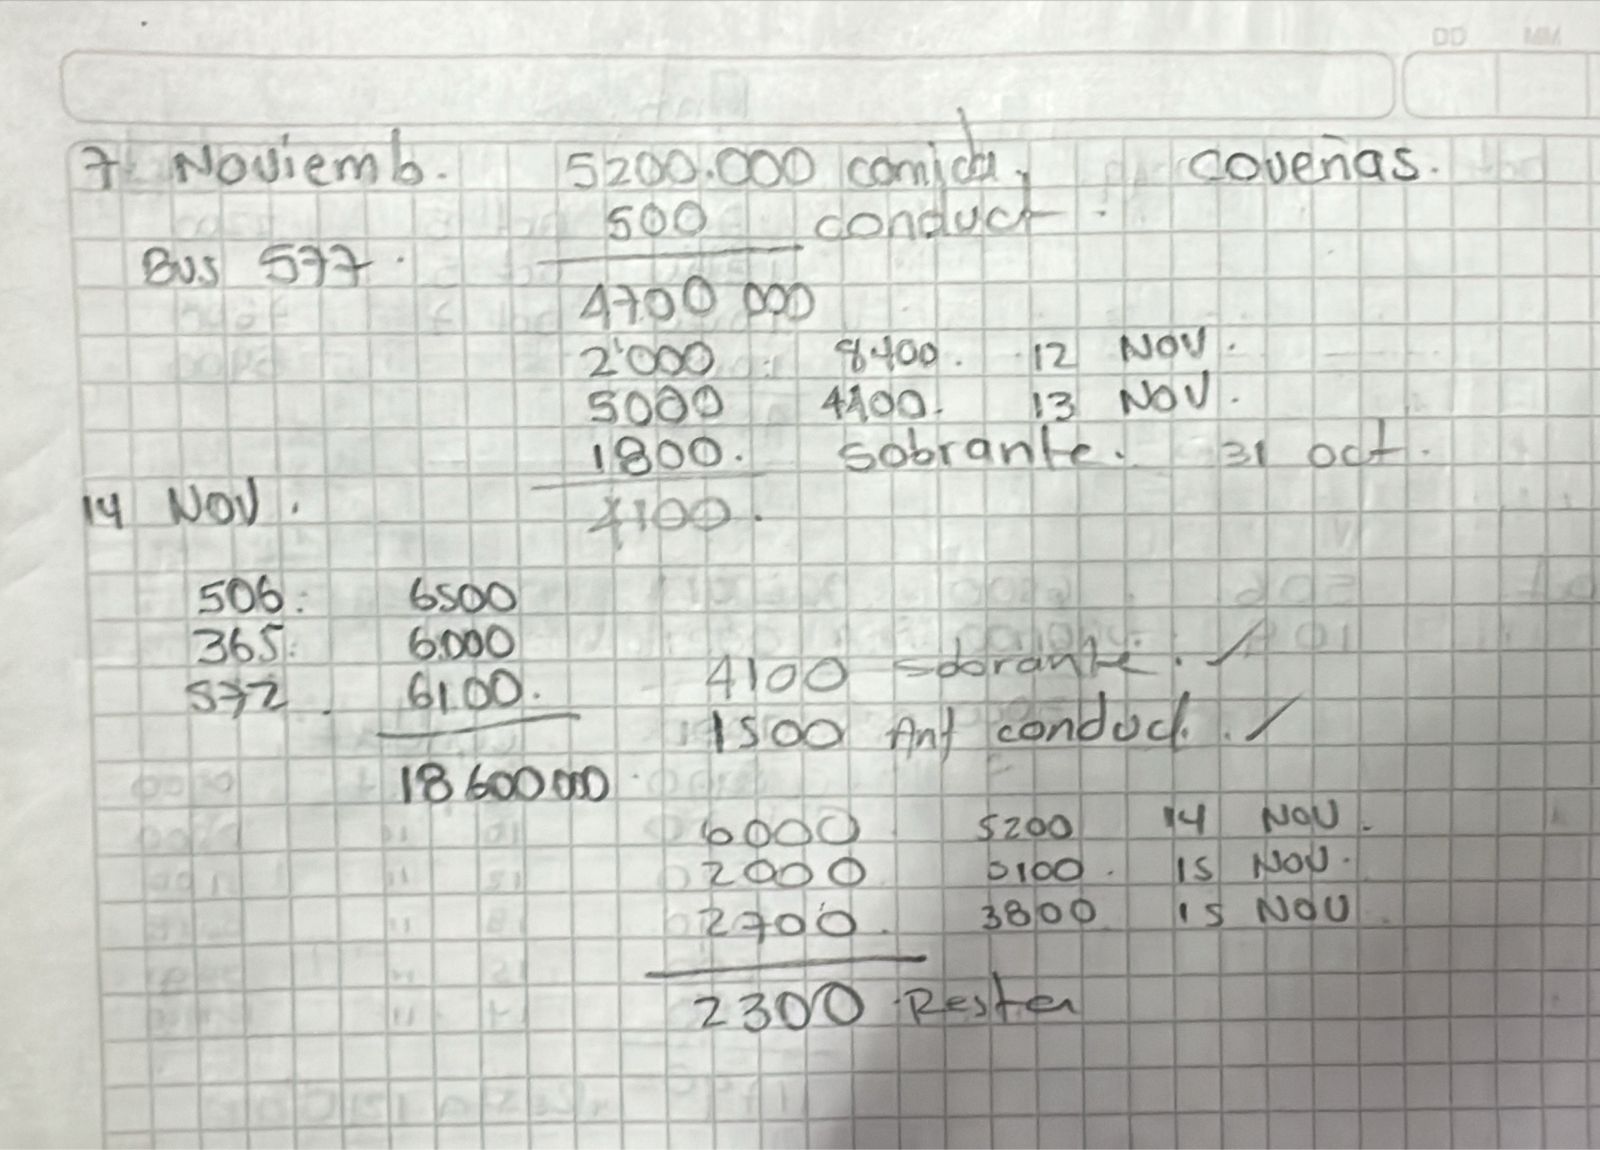 DD MM
7 Noviemb. 5200.000 comida. coveñas.
500 conduct.
Bus 577.
4700 000
2'000 8400. 12 NOV.
5000 4100. 13 NOV.
1800. sobrante. 31 oct.
14 NOV. 4100.
506. 6500
365. 6.000
4100 sobrante.
572. 6100.
1500 Ant conduct.
18600000
6000 5200 14 NOV.
2000 15 NOV.
2700. 3800 15 NOV
2300 Resta